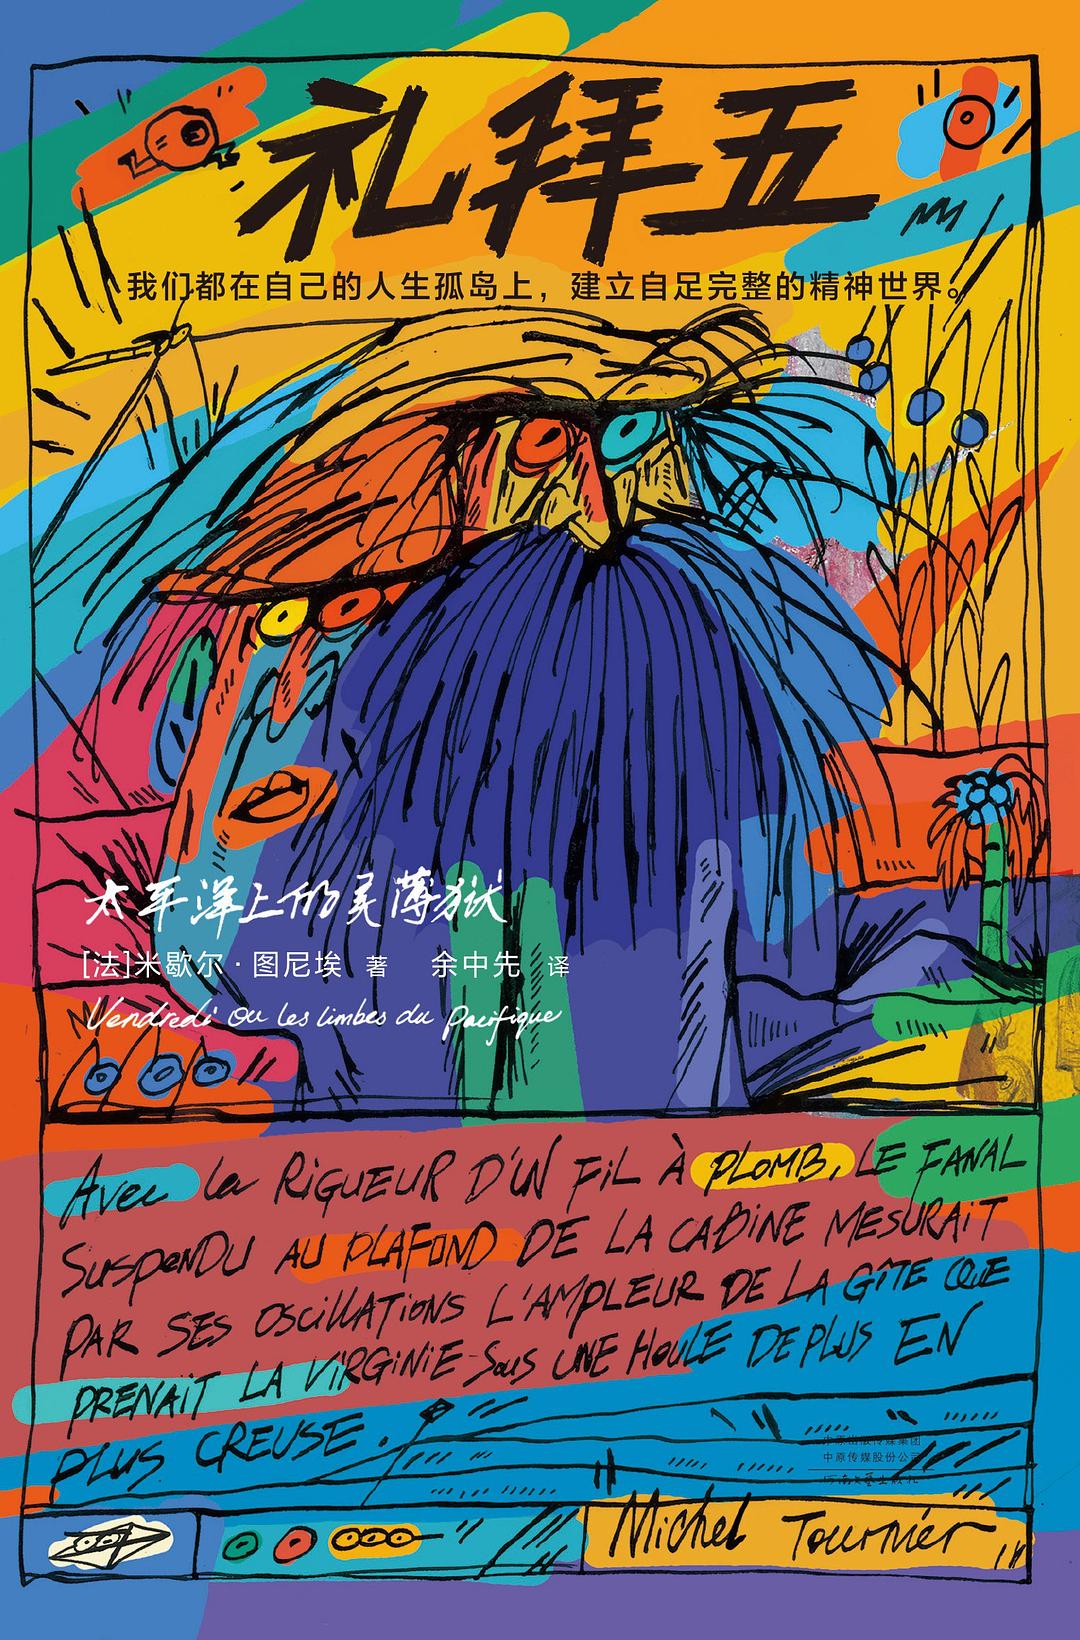 礼拜五
我们都在自己的人生孤岛上，建立自足完整的精神世界。
太平洋上的灵薄狱
[法]米歇尔·图尼埃 著 余中先 译
Vendredi ou les limbes du Pacifique
Avec la RiGUEUR D'UN FiL À PLOMB, LE FANAL
SuspeNDU AU PLAFOND DE LA CABiNE MESURAiT
PAR SES OSCiLLATiONS L'AMPLEUR DE LA GÎTE QUE
PRENAiT LA ViRGiNiE Sous UNE HOULE DE PLUS EN
PLUS CREUSE.
中原出版传媒集团
中原传媒股份公司
河南文艺出版社
Michel Tournier